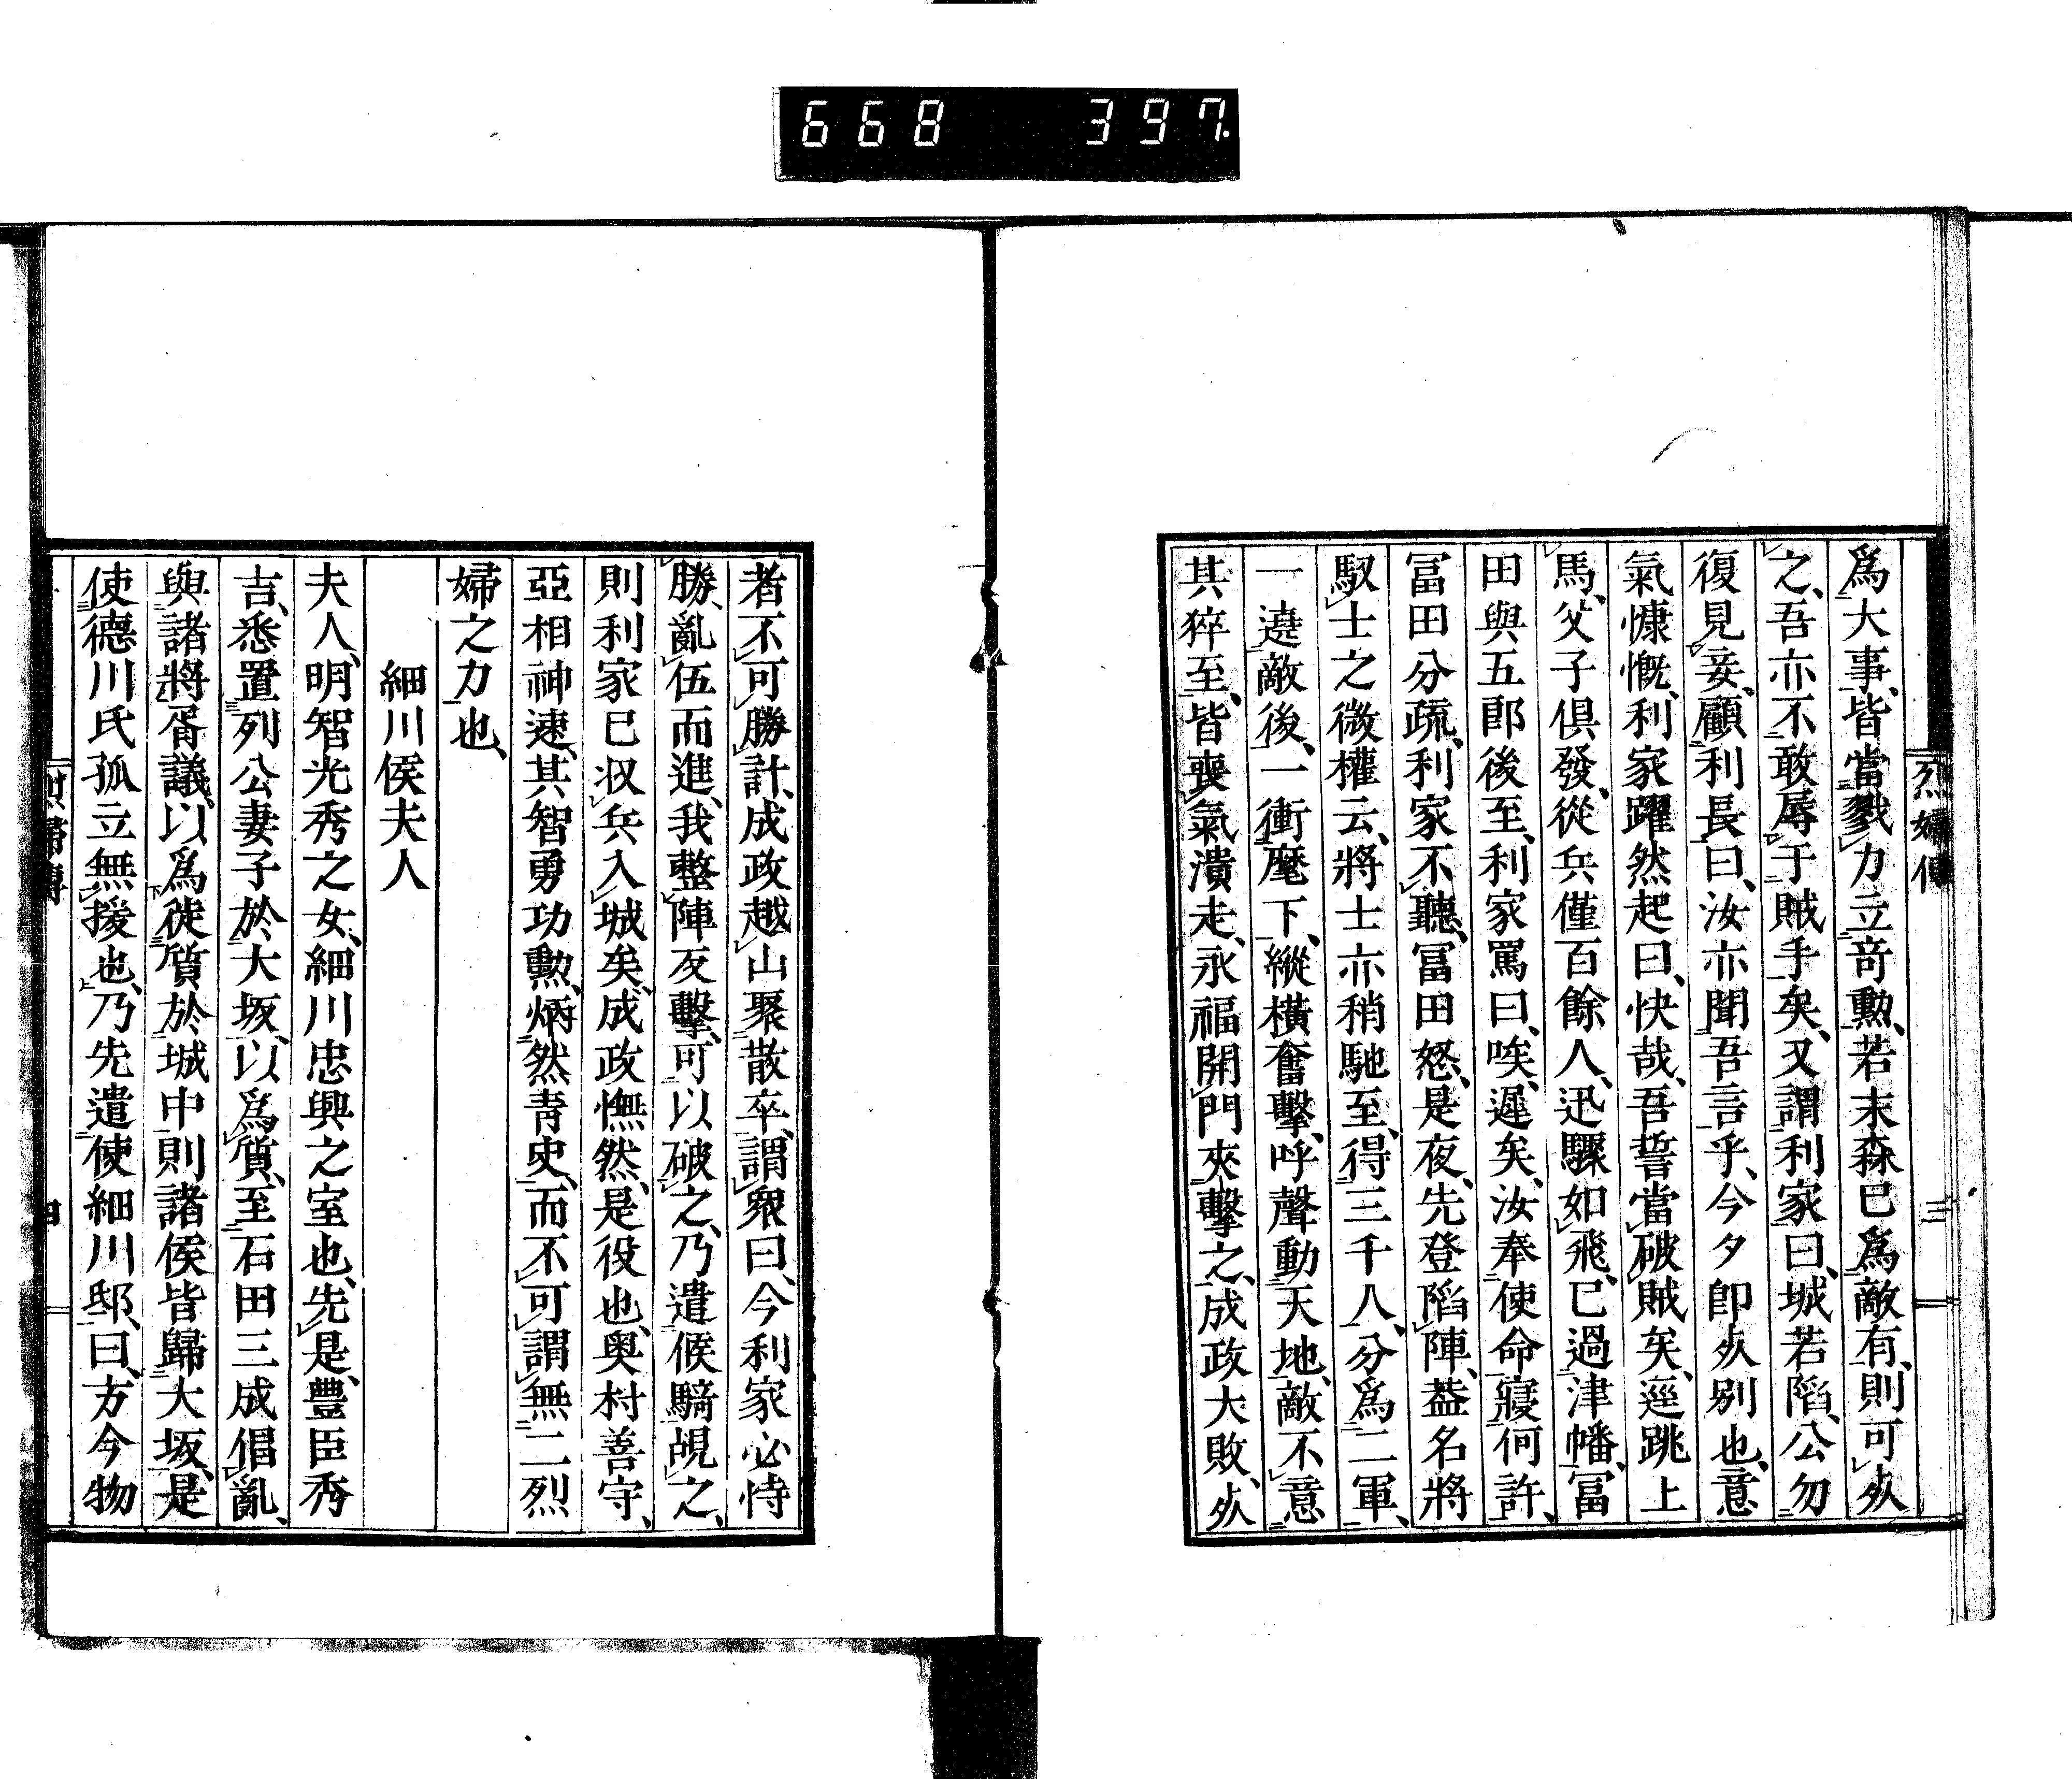 668 397.
烈婦傳 三
爲大事、皆當戮力立竒勲、若末森已爲敵有、則可㱔
之、吾亦不敢辱于賊手矣、又謂利家曰、城若陷、公勿
復見妾、顧利長曰、汝亦聞吾言乎、今夕卽㱔別也、意
氣慷慨、利家躍然起曰、快哉、吾誓當破賊矣、逕跳上
馬、父子俱發、從兵僅百餘人、迅驟如飛、已過津幡、冨
田與五郎後至、利家罵曰、唉、遲矣、汝奉使命寢何許、
冨田分疏、利家不聽、冨田怒、是夜、先登陷陣、葢名將
馭士之微權云、將士亦稍馳至、得三千人、分爲二軍、
一遶敵後、一衝麾下、縱橫奮擊、呼聲動天地、敵不意
其猝至、皆喪氣潰走、永福開門夾擊之、成政大敗、㱔
者不可勝計、成政越山聚散卒、謂衆曰、今利家必恃
勝、亂伍而進、我整陣反擊、可以破之、乃遣候騎覘之、
則利家已収兵入城矣、成政憮然、是役也、奥村善守、
亞相神速、其智勇功勲、炳然青史、而不可謂無二烈
婦之力也、
細川侯夫人
夫人、明智光秀之女、細川忠興之室也、先是、豐臣秀
吉、悉置列公妻子於大坂、以爲質、至石田三成倡亂、
與諸將胥議、以爲徙質於城中、則諸侯皆歸大坂、是
使德川氏孤立無援也、乃先遣使細川邸、曰、方今物
烈婦傳 四